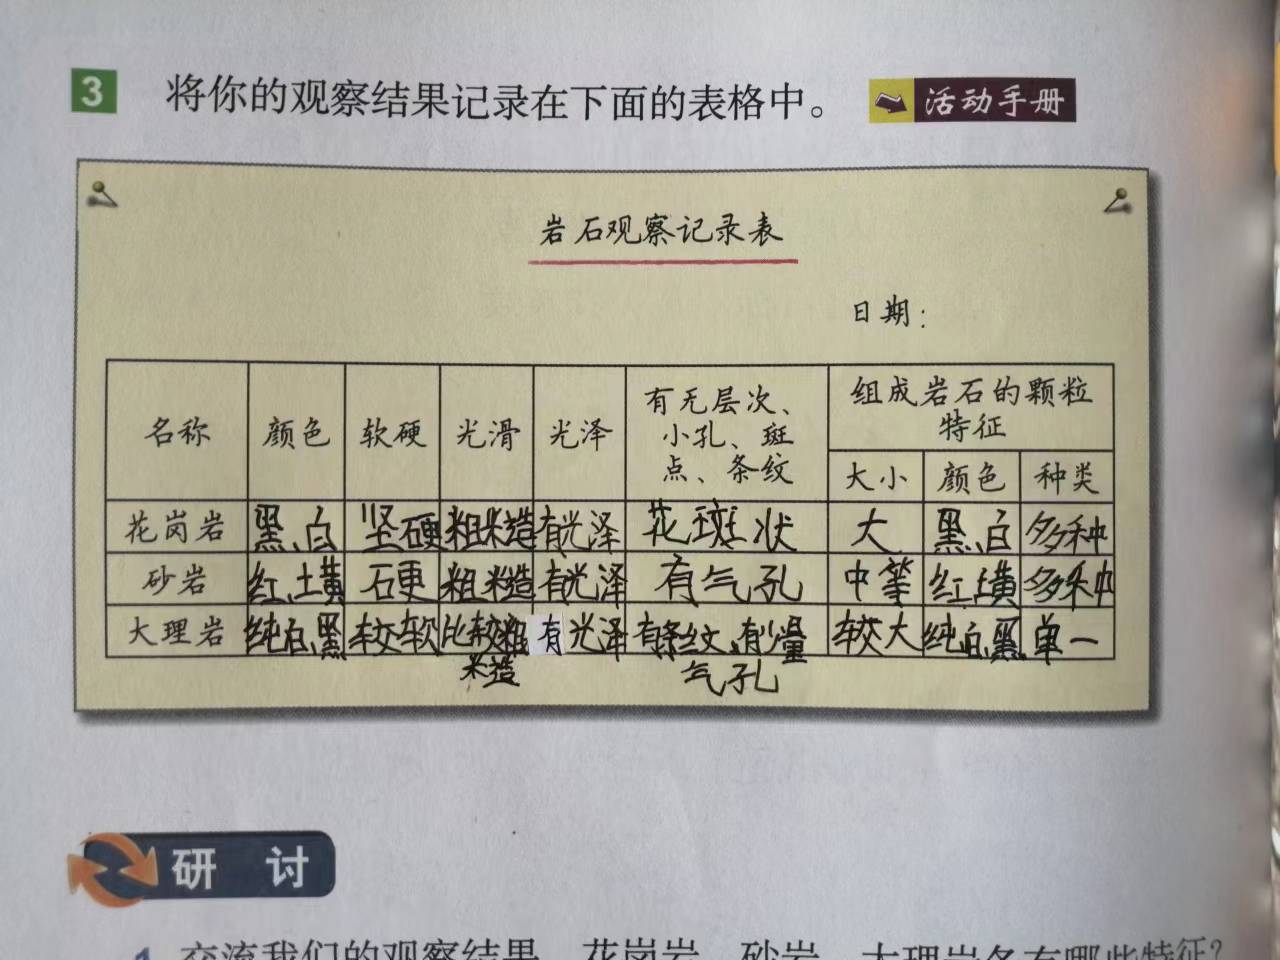 3 将你的观察结果记录在下面的表格中。 活动手册
岩石观察记录表
日期：
名称 颜色 软硬 光滑 光泽 有无层次、小孔、斑点、条纹 组成岩石的颗粒特征
大小 颜色 种类
花岗岩 黑、白 坚硬 粗糙 有光泽 花斑状 大 黑、白 多种
砂岩 红、土黄 石更 粗糙 有光泽 有气孔 中等 红、土黄 多种
大理岩 纯白、黑 较软 比较粗糙 有光泽 有条纹、有少量气孔 较大 纯白、黑 单一
研 讨
1 交流我们的观察结果，花岗岩、砂岩、大理岩各有哪些特征？